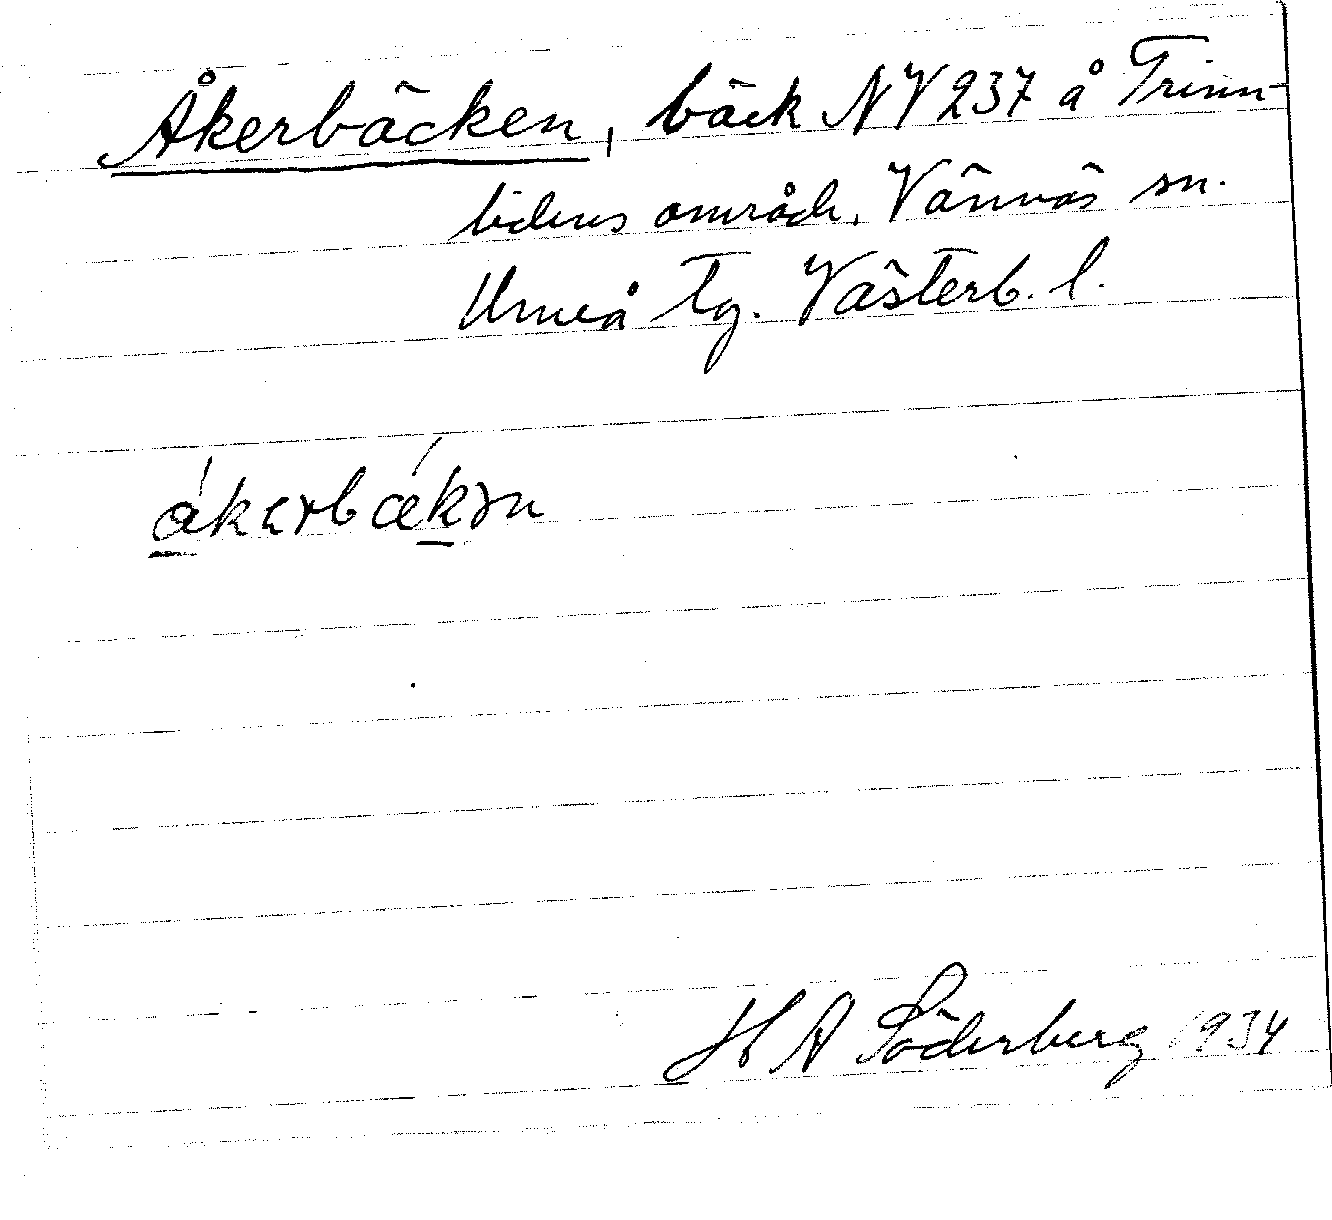 Åkerbäcken, bäck NV 237 å Trinn-
lidens område, Vännäs sn.
Umeå Tg. Västerb. l.
ákerbǽkən
H A Söderberg 1934